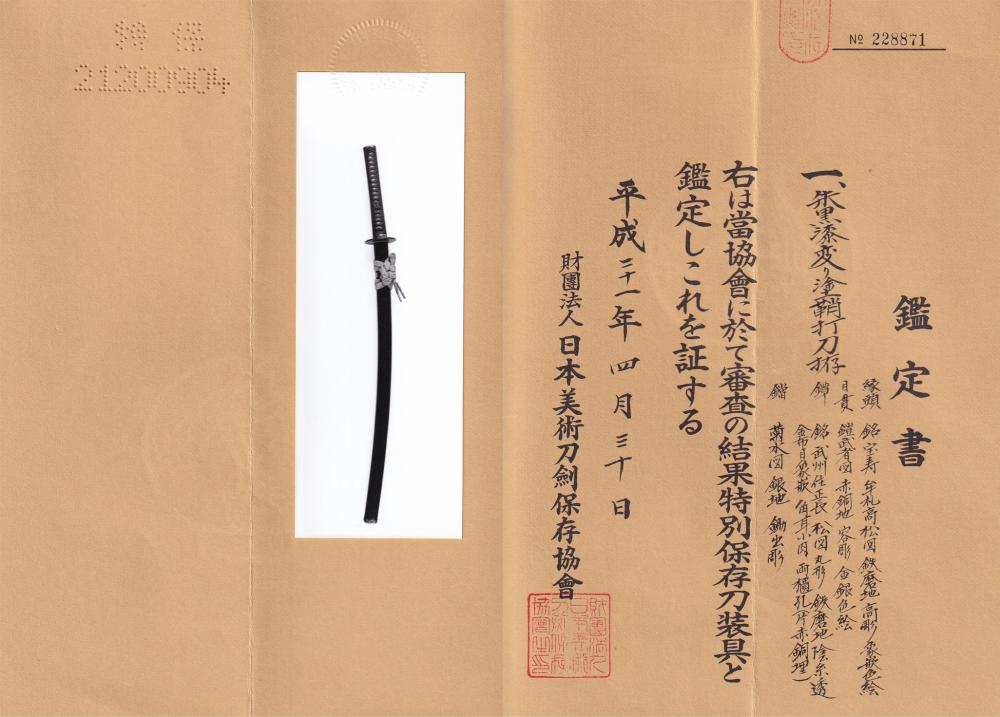 № 228871
鑑定書
一、朱黒漆変り塗鞘打刀拵
縁頭 銘 宝寿 牟礼高松図 鉄磨地 高彫 象嵌色絵
目貫 鎧武者図 赤銅地 容彫 金銀色絵
鐔 銘 武州住正長 松図 丸形 鉄磨地 陰糸透
金布目象嵌 角耳小肉 両櫃孔(片赤銅埋)
鎺 菊水図 銀地 鋤出彫
右は當協會に於て審査の結果特別保存刀装具と
鑑定しこれを証する
平成二十一年四月三十日
財團法人日本美術刀劍保存協會
特保
21200904